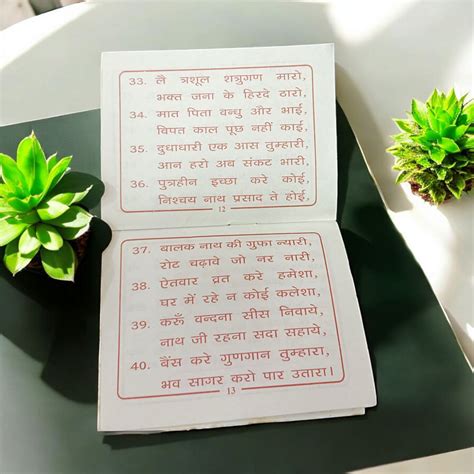 33. लै त्रशूल शत्रुगण मारो,
भक्त जना के हिरदे ठारो,
34. मात पिता वन्धु और भाई,
विपत काल पूछ नहीं काई,
35. दुधाधारी एक आस तुम्हारी,
आन हरो अब संकट भारी,
36. पुत्रहीन इच्छा करे कोई,
निश्चय नाथ प्रसाद ते होई,
12
37. बालक नाथ की गुफा न्यारी,
रोट चढ़ावे जो नर नारी,
38. ऐतवार व्रत करे हमेशा,
घर में रहे न कोई कलेशा,
39. करूँ वन्दना सीस निवाये,
नाथ जी रहना सदा सहाये,
40. बैंस करे गुणगान तुम्हारा,
भव सागर करो पार उतारा।
13